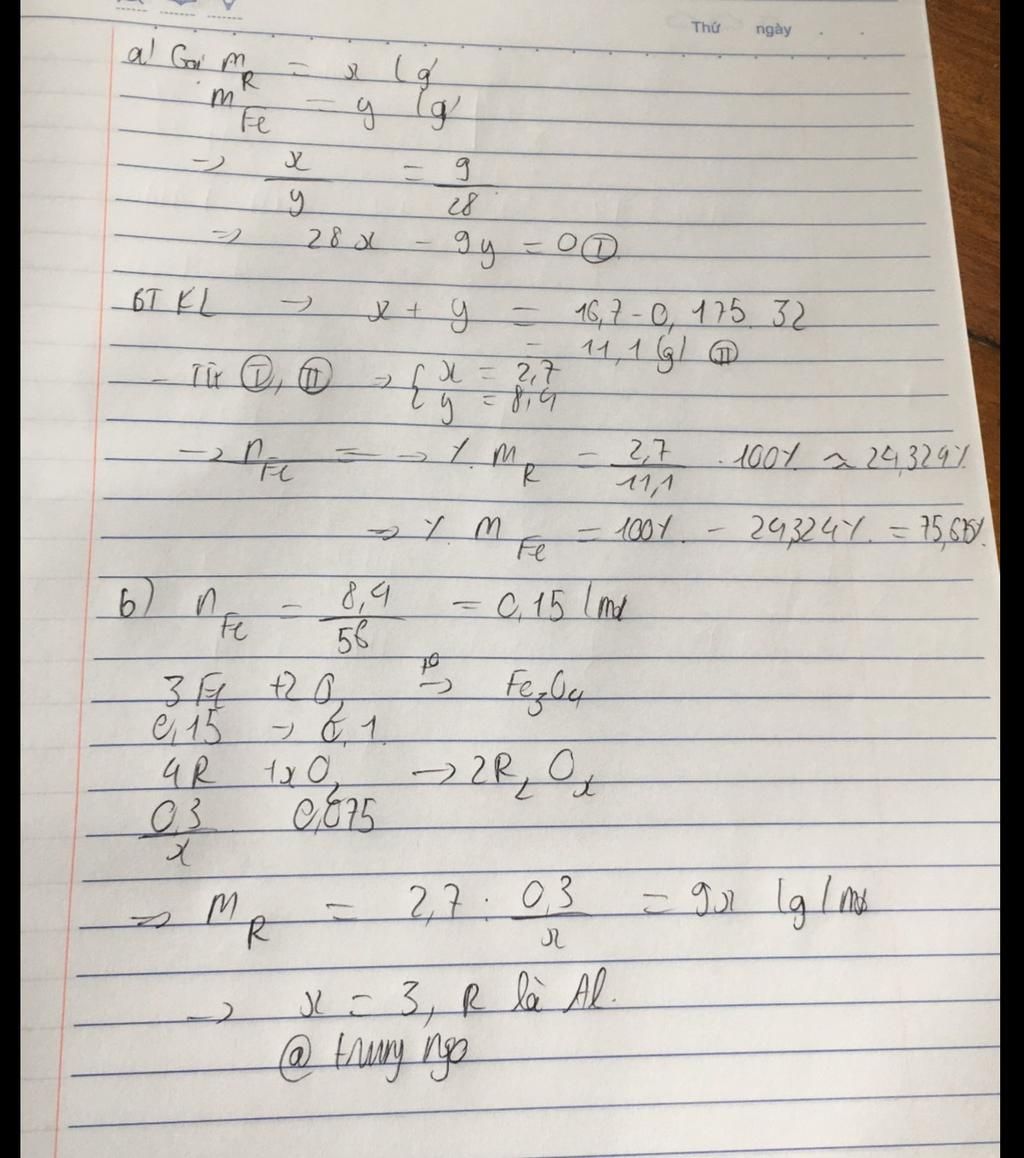 Thứ ngày
a) Gọi m_R = x (g)
m_Fe = y (g)
→ x/y = 9/28
=> 28x - 9y = 0 (I)
BTKL → x + y = 16,7 - 0,175.32
= 11,1 (g) (II)
- Từ (I), (II) → { x = 2,7
{ y = 8,4
→ n_Fe = → %m_R = 2,7/11,1 . 100% ≈ 24,324%
=> %m_Fe = 100% - 24,324% = 75,675%
b) n_Fe = 8,4/56 = 0,15 (mol
3Fe + 2O₂ t°→ Fe₃O₄
0,15 → 0,1
4R + xO₂ → 2R₂Oₓ
0,3/x 0,075
=> M_R = 2,7 : 0,3/x = 9x (g/mol
→ x = 3, R là Al.
@ trung ngo